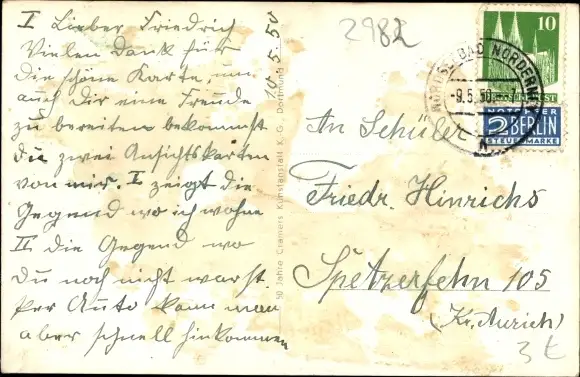 I Lieber Friedrich
Vielen Dank für
die schöne Karte, um
auch Dir eine Freude
zu bereiten bekommst
du zwei Ansichtskarten
von mir. I zeigt die
Gegend wo ich wohne
II die Gegend wo
Du noch nicht warst.
Per Auto kann man
aber schnell hinkommen
10.5.50
50 Jahre Cramers Kunstanstalt K.-G., Dortmund
2982
10
DEUTSCHE POST
NORDSEEBAD NORDERNEY
-9.5.50
NOTOPFER
2 BERLIN
STEUERMARKE
An Schüler
Friedr. Hinrichs
Spetzerfehn 105
(Kr. Aurich)
3€